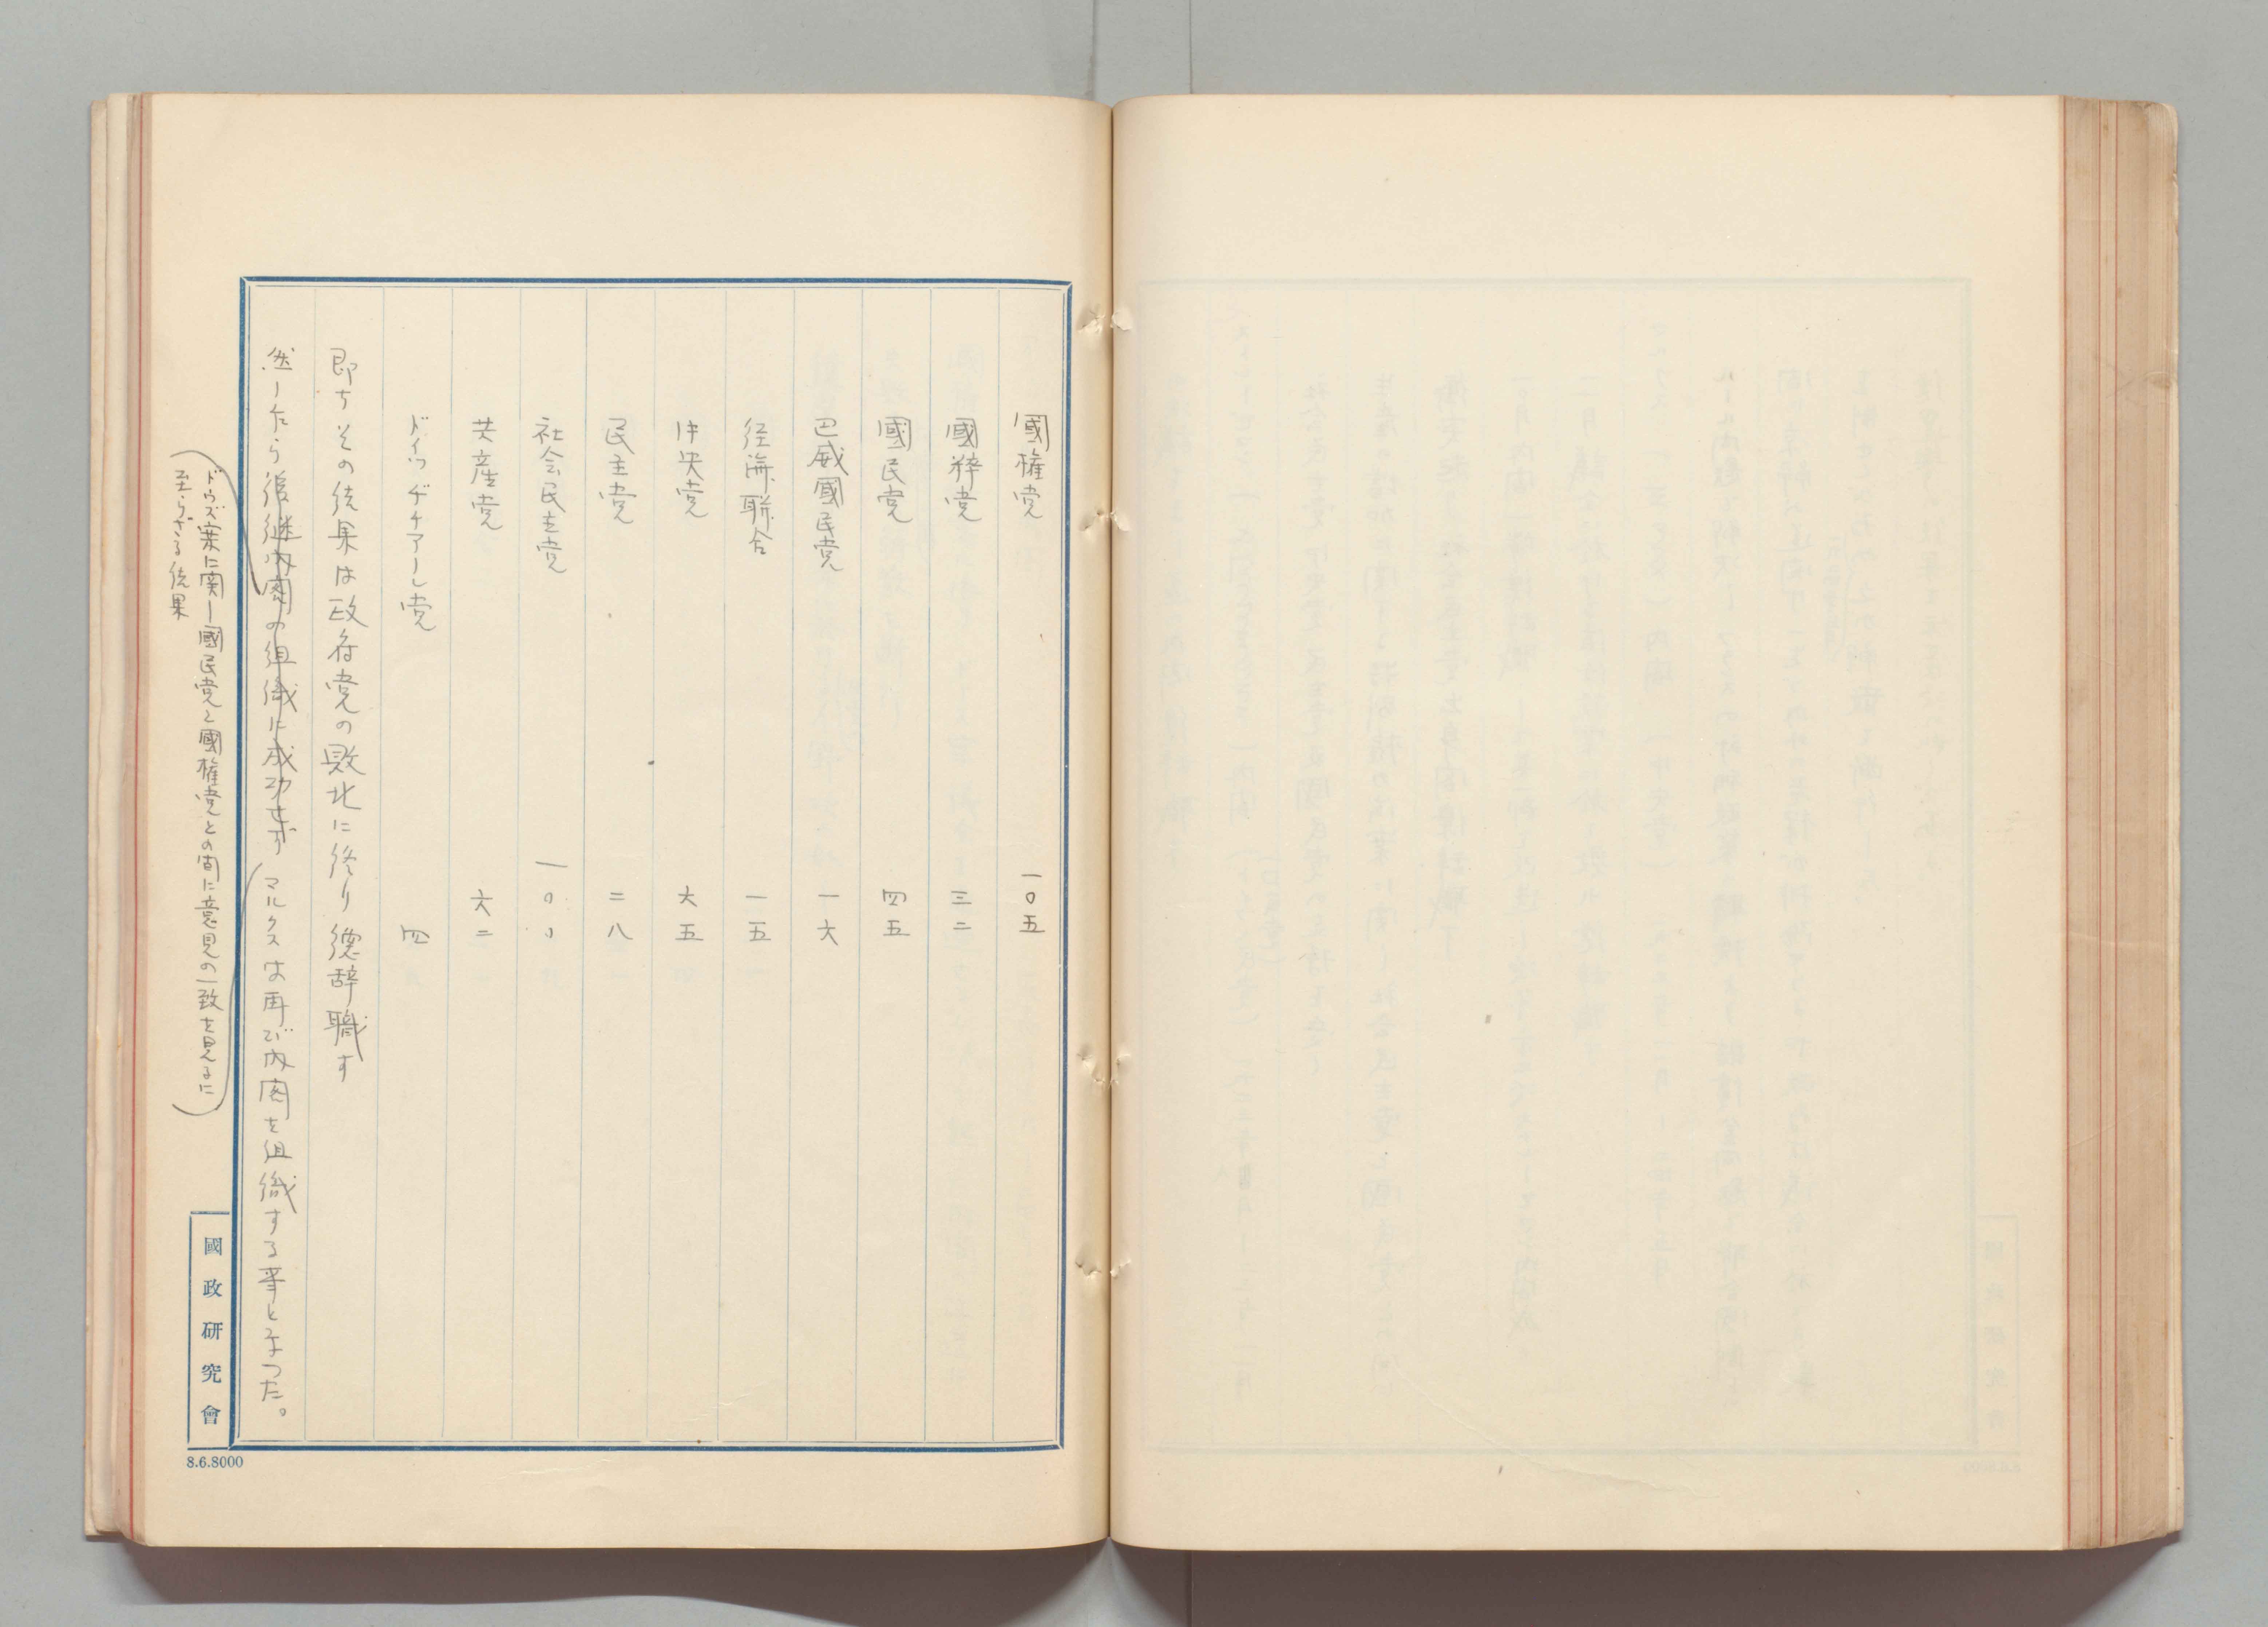 國権党　一〇五
國粹党　三二
國民党　四五
巴威國民党　一六
経済聯合　一五
中央党　六五
民主党　二八
社会民主党　一〇〇
共産党　六二
ドイツヂチアーレ党　四
即ちその結果は政府党の敗北に終り総辞職す
然しながら後継内閣の組織に成功せず マルクスは再び内閣を組織する事となつた。
(ドウズ案に関し國民党と國権党との間に意見の一致を見るに
至らざる結果)
國政研究會
8.6.8000